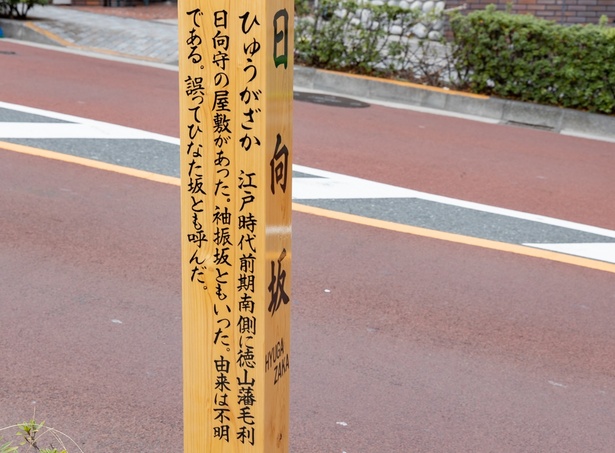 日向坂
HYUGA
ZAKA
ひゅうがざか 江戸時代前期南側に徳山藩毛利
日向守の屋敷があった。袖振坂ともいった。由来は不明
である。誤ってひなた坂とも呼んだ。